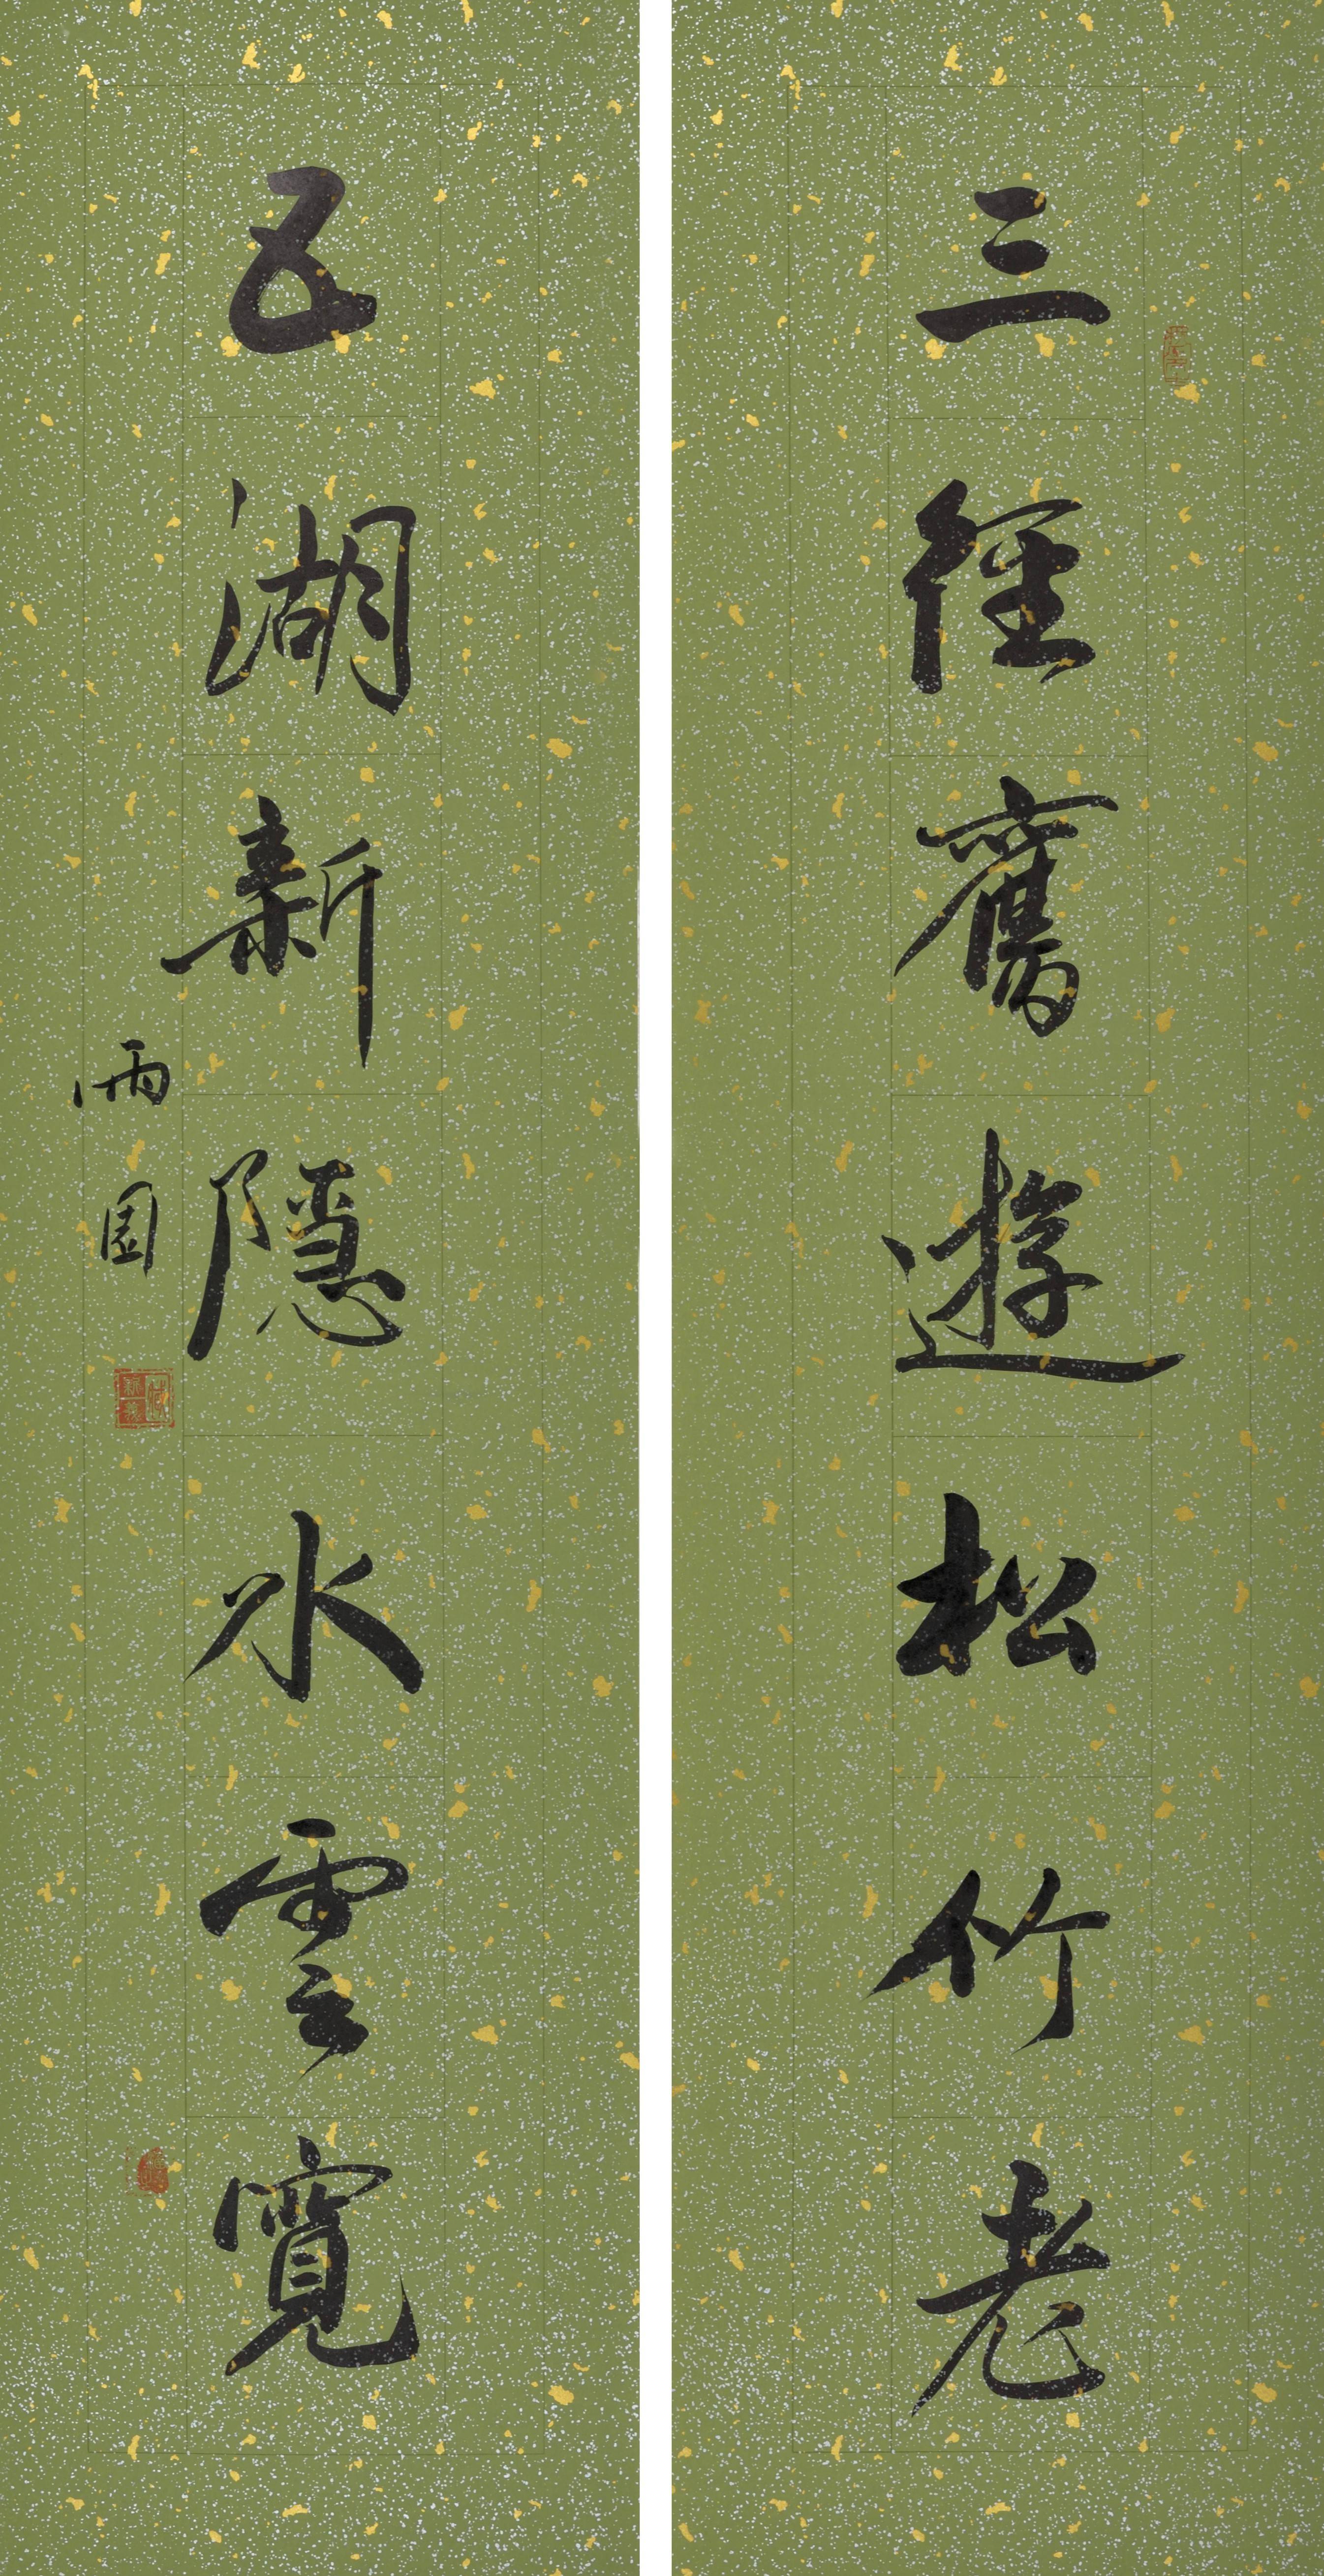 三徑舊遊松竹老
五湖新隱水雲寬
雨園